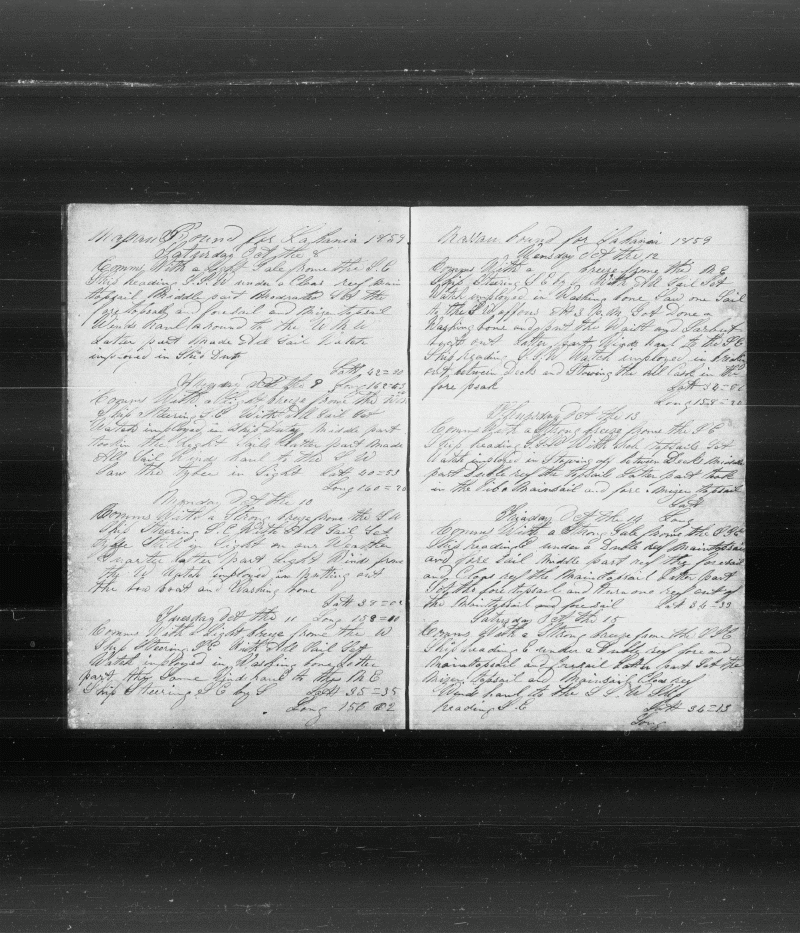 Bound for Lahania 1859
Saturday Oct the 8
Comms With a Gale frome the S.E
Ship heading S.S.W under a Close reef main
topsail Middle part Moderate Set the
fore topsail and foresail and Mizen topsail
Winds haul around to the W N W
Latter part Made All Sail Watch
imployed in Ship Duty
Latt 42=20
Sunday Oct the 9 Long 162=45
Comms With a light breeze frome the
Ship Steering S.E With All Sail Set
Watch imployed in Ship Duty Middle part
took in the light Sails Latter part Made
All Sail Winds haul to the S W
Saw the in Sight Latt 40=53
Long 160=20
Monday Oct the 10
Comms With a Strong breeze frome the S W
Ship Steering S.E With All Sail Set
Still in Sight on our Weather
Quarter Latter part Light Winds frome
the W Watch imployed in putting out
the bow boat and Washing bone
Latt 37=02
Tuesday Oct the 11 Long 158=11
Comms With a Light breeze frome the W
Ship Steering S.E With All Sail Set
Watch imployed in Washing bone Latter
part the Same Wind haul to the N E
Ship Steering S E by S Latt 35=35
Long 156
bound for Lahania 1859
Wensday Oct the 12
Comms With a breeze frome the N E
Ship Stearing S E by S With All Sail Set
Watch imployed in Washing bone Saw one Sail
to the S At 3 P.M. Got Done
Washing bone and put the Waist and Larbort
boats out Latter part Winds haul to the S E
Ship heading S.S.W Watch imployed in breaking
out between Decks and Stowing the oil Cask in the
fore peak Latt 34=
Long 158=20
Thursday Oct the 13
Comms With a Strong breeze frome the S E
Ship heading S.S.W With topsails Set
Watch imployed in Stowing of between Decks Middle
part Double reef the topsails Latter part took
in the Jibe Mainsail and fore & Mizen topsail
Latt
Friday Oct the 14 Long
Comms With a Strong Gale frome the
Ship heading under a Double reef Maintopsail
and fore Sail Middle part reef the foresail
and Close reef the Maintopsail Latter part
Set the fore topsail and turn one reef out of
the Maintopsail and foresail Latt 34=33
Saturday Oct the 15
Comms With a Strong breeze frome the
Ship heading E under a Double reef fore and
Maintopsail and foresail Latter part Set the
Mizen topsail and Mainsail Close reef
Winds haul to the S S W Ship
heading S.E Latt 34=13
Long